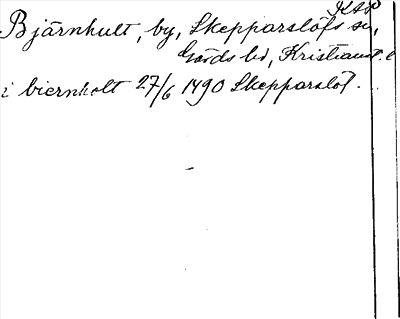 Bjärnhult, by, Skepparslöfs sn,
Gärds hd, Kristianst.
i biernholt 27/6 1490 Skepparslöf.